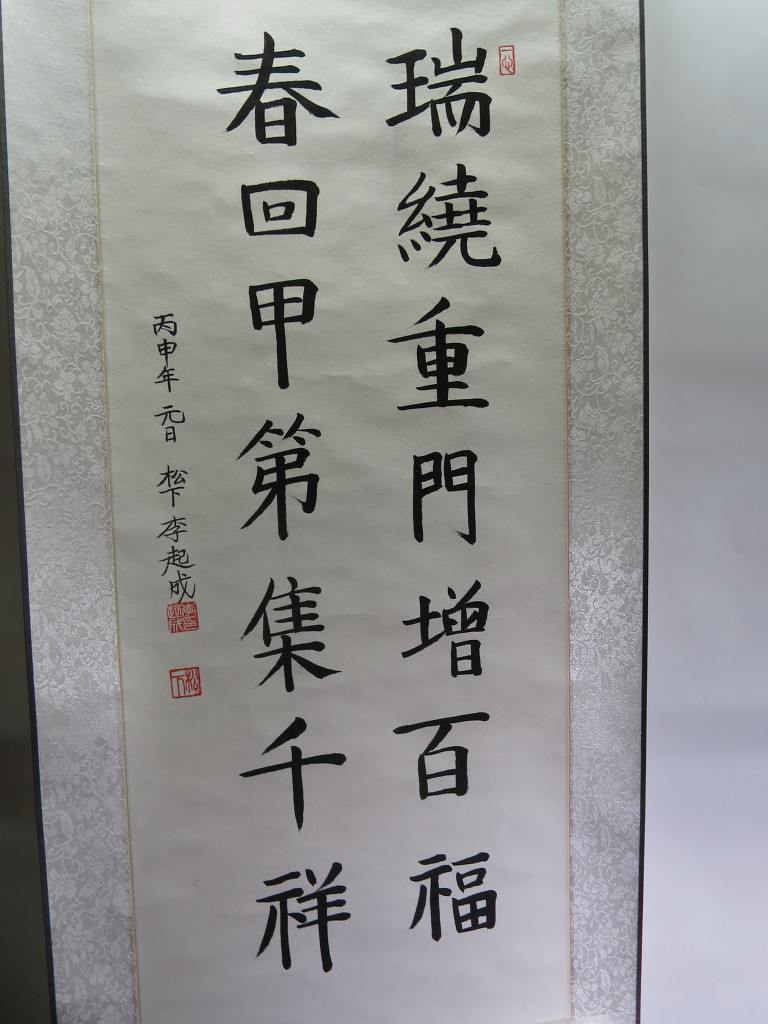 瑞繞重門增百福
春回甲第集千祥
丙申年 元日 松下 李起成
松下